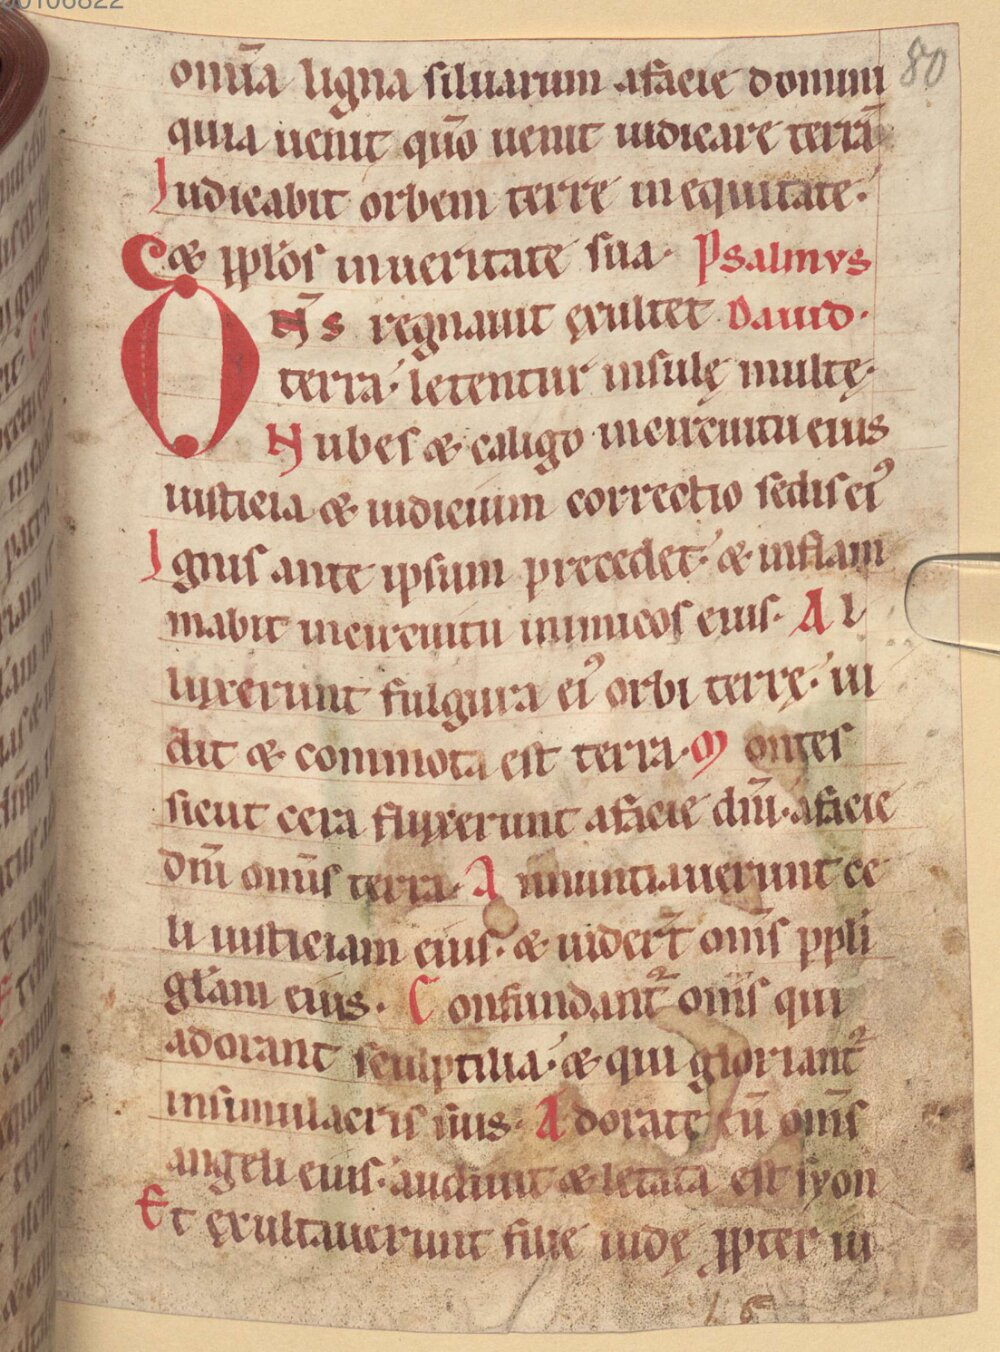 00106822
80
om̄ia ligna siluarum afacie domini
quia uenit qm̄o uenit iudicare terrā
Iudicabit orbem terre inequitate·
& pplōs inueritate sua· Psalmvs
DNS̄ regnauit ęxultet Dauid·
terra· letentur insulę multę·
Nubes & caligo incircuitu eius
iusticia & iudicium correctio sedis ei᷒
Ignis ante ipsum precedet· & inflam
mabit incircuitu inimicos eius· Al
luxerunt fulgura ei᷒ orbi terrę· ui
dit & commota est terra· Montes
sicut cera fluxerunt afacie dn̄i· afacie
dn̄i omīs terra· Annuntiauerunt ce
li iusticiam eius· & uider̄t om̄s ppli
gl̄am eius· Confundant᷑ om̄s qui
adorant sculptilia· & qui gloriant᷑
insimulacris suis· Adorate eū om̄s
angeli eius· audiuit & letata est syon
Et ęxultauerunt filie iudę ꝓpter iu